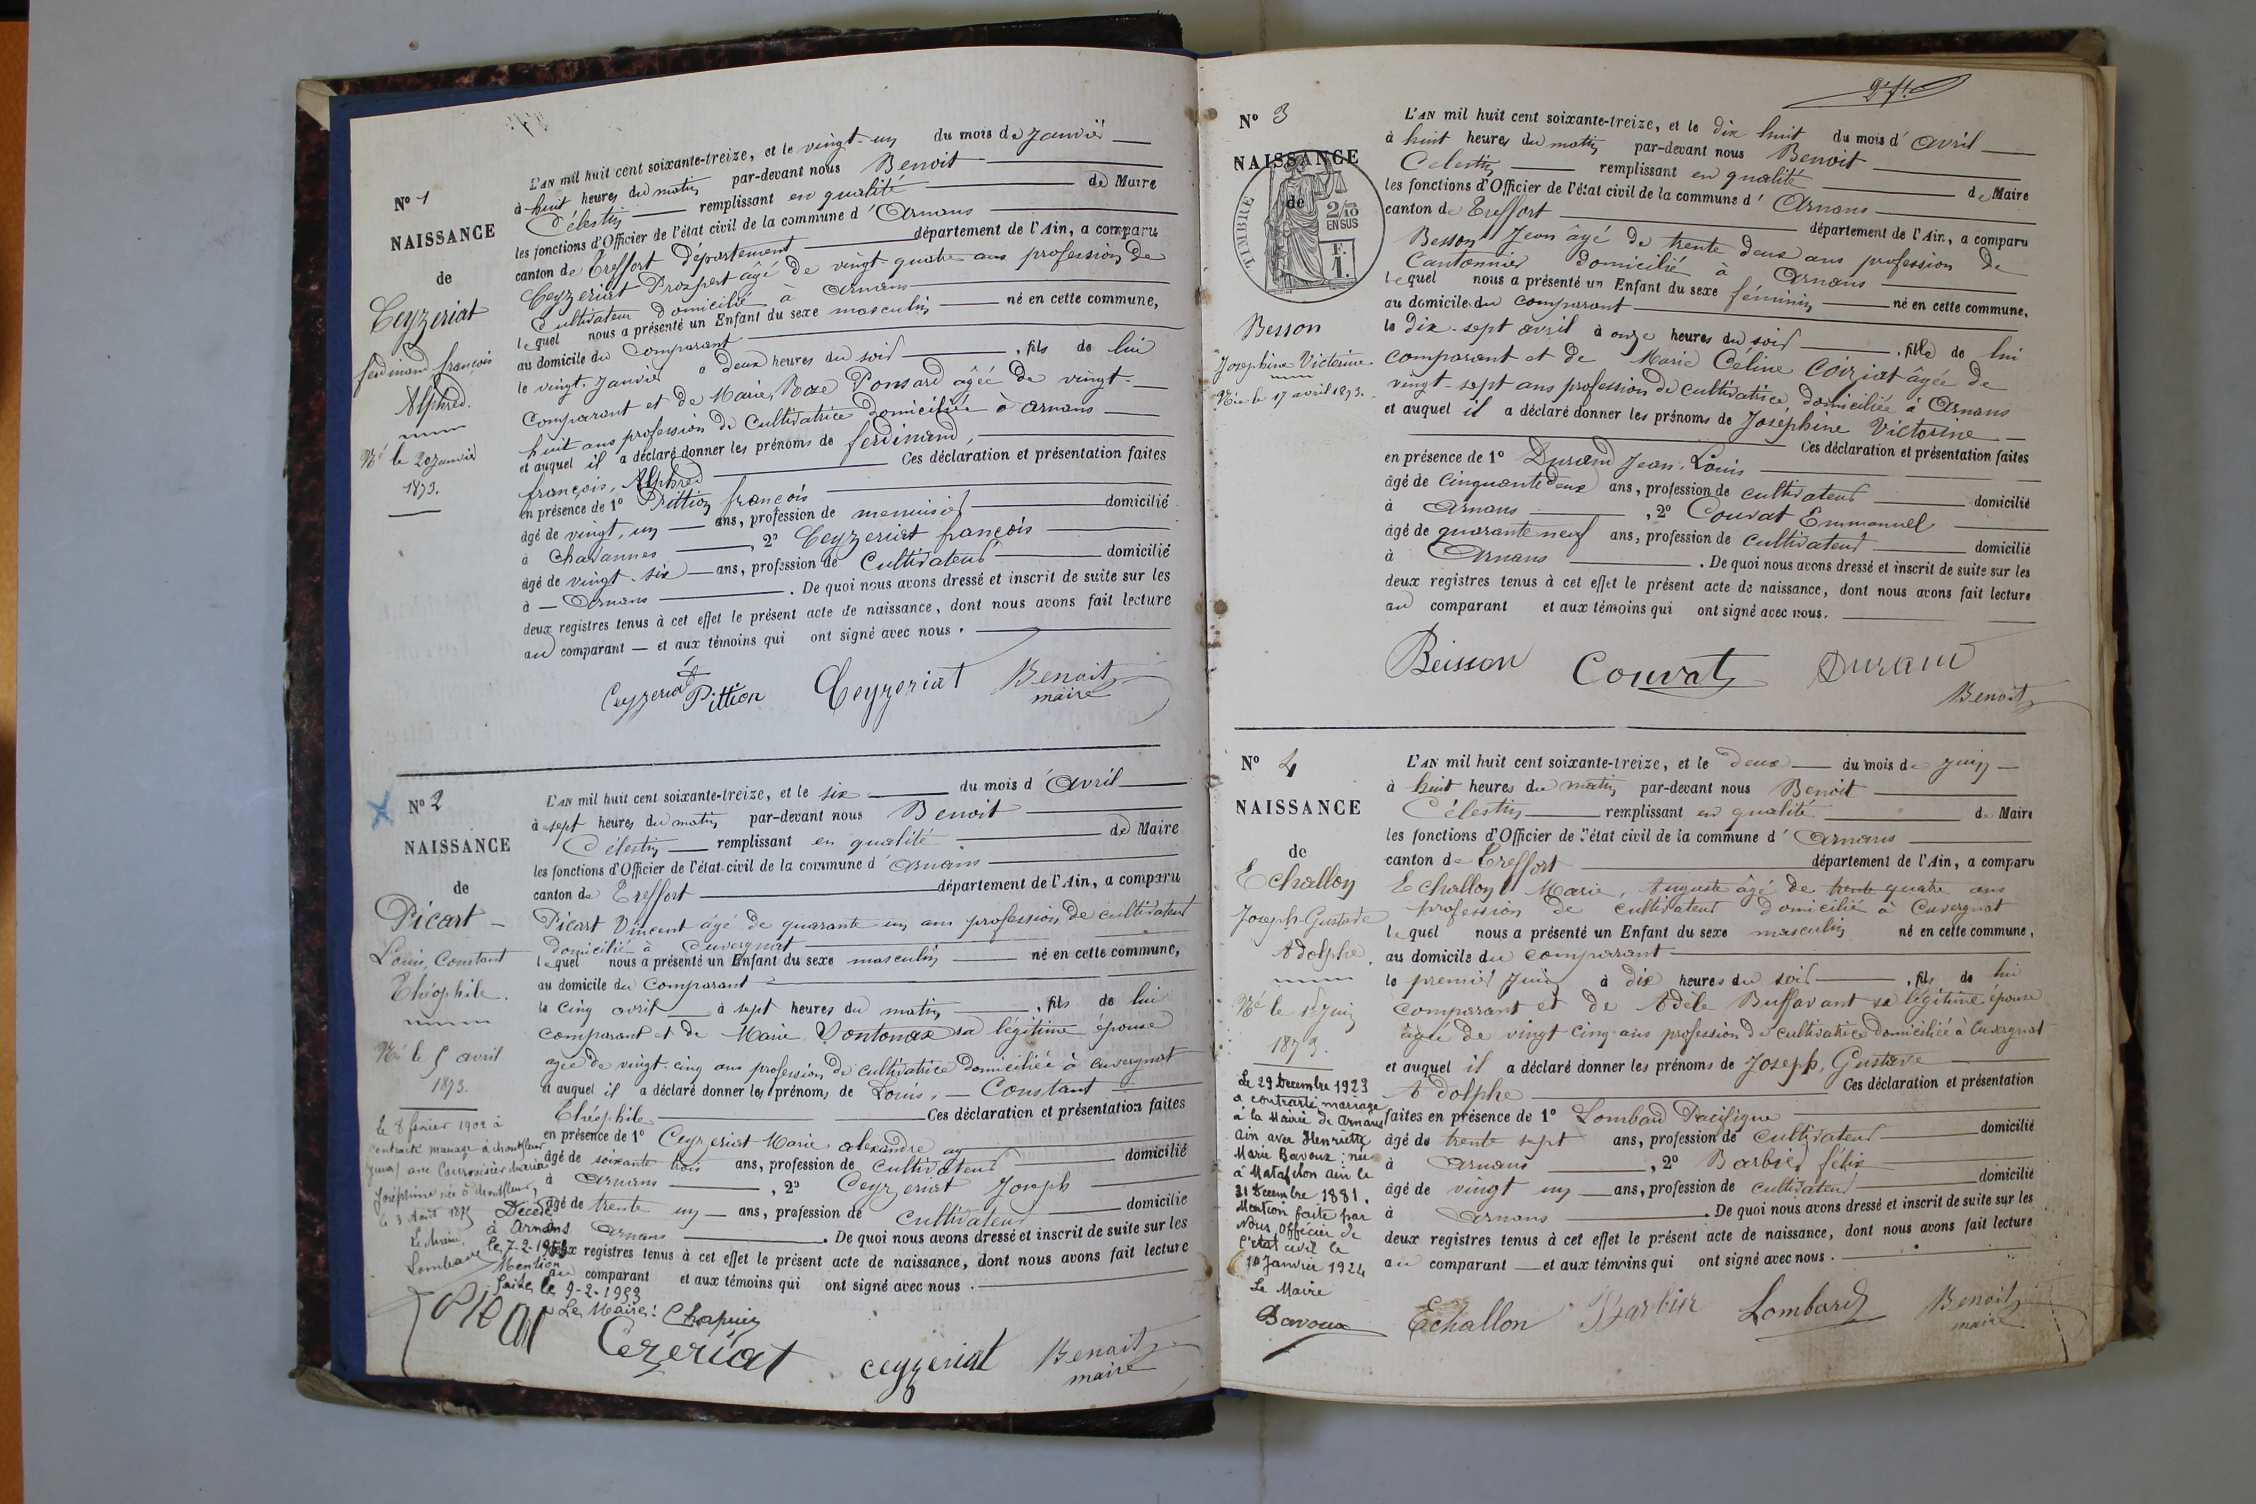 N° 1
NAISSANCE
de
Ceyzeriat
ferdinand françois
Alphred.
Né le 20 janvier
1873.
L'AN mil huit cent soixante-treize, et le vingt-un du mois de Janvier
à huit heures du matin par-devant nous Benoit
Célestin remplissant en qualité de Maire
les fonctions d'Officier de l'état civil de la commune d'Arnans
canton de Treffort département département de l'Ain, a comparu
Ceyzeriat Prospert âgé de vingt quatre ans profession de
Cultivateur domicilié à Arnans
lequel nous a présenté un Enfant du sexe masculin né en cette commune,
au domicile du comparant
le vingt Janvier à deux heures du soir, fils de lui
comparant et de Marie, Rose Ponsard âgée de vingt-
huit ans profession de Cultivatrice domiciliée à Arnans
et auquel il a déclaré donner les prénoms de ferdinand,
françois, Alphred Ces déclaration et présentation faites
en présence de 1° Pittion françois
âgé de vingt, un ans, profession de menuisier domicilié
à Chavannes, 2° Ceyzeriat françois
âgé de vingt-six ans, profession de Cultivateur domicilié
à Arnans. De quoi nous avons dressé et inscrit de suite sur les
deux registres tenus à cet effet le présent acte de naissance, dont nous avons fait lecture
au comparant et aux témoins qui ont signé avec nous.
Ceyzeriat Pittion Ceyzeriat Benoit
maire
N° 2
NAISSANCE
de
Picart
Louis, Constant
Théophile.
Né le 5 avril
1873.
le 8 février 1902 à
contracté mariage à Montfleur
(Jura) avec Courvoisier Maria
Joséphine née à Montfleur,
le 3 Août 1875
Le Maire.
Lombard
Décédé
à Arnans
le 7-2-1953
Mention
faite le 9-2-1953
Le Maire: Chapuis
L'AN mil huit cent soixante-treize, et le six du mois d'Avril
à sept heures du matin par-devant nous Benoit
Célestin remplissant en qualité de Maire
les fonctions d'Officier de l'état-civil de la commune d'Arnans
canton de Treffort département de l'Ain, a comparu
Picart Vincent âgé de quarante un ans profession de cultivateur
domicilié à Cuvergnat
lequel nous a présenté un Enfant du sexe masculin né en cette commune,
au domicile du comparant
le cinq avril à sept heures du matin, fils de lui
comparant et de Marie Dontonax sa légitime épouse
agée de vingt-cinq ans profession de cultivatrice domiciliée à cuvergnat
et auquel il a déclaré donner les prénoms de Louis, Constant
Théophile Ces déclaration et présentation faites
en présence de 1° Ceyzeriat Marie alexandre ag
âgé de soixante trois ans, profession de cultivateur domicilié
à Arnans, 2° Ceyzeriat Joseph
âgé de trente un ans, profession de cultivateur domicilié
à Arnans. De quoi nous avons dressé et inscrit de suite sur les
deux registres tenus à cet effet le présent acte de naissance, dont nous avons fait lecture
au comparant et aux témoins qui ont signé avec nous.
Picart Cezeriat ceyzeriat Benoit
maire
N° 3
NAISSANCE
de
TIMBRE
2/10
EN SUS
F.
1.
Besson
Josephine Victorine
Née le 17 avril 1873.
L'AN mil huit cent soixante-treize, et le dix huit du mois d'avril
à huit heures du matin par-devant nous Benoit
Celestin remplissant en qualité de Maire
les fonctions d'Officier de l'état civil de la commune d'Arnans
canton de Treffort département de l'Ain, a comparu
Besson Jean âgé de trente deux ans profession de
Cantonnier domicilié à Arnans
lequel nous a présenté un Enfant du sexe féminin né en cette commune,
au domicile du comparant
le dix-sept avril à onze heures du soir, fille de lui
comparant et de Marie Céline Coiziat âgée de
vingt-sept ans profession de cultivatrice domiciliée à Arnans
et auquel il a déclaré donner les prénoms de Joséphine Victorine
Ces déclaration et présentation faites
en présence de 1° Durand Jean-Louis
âgé de cinquante deux ans, profession de cultivateur domicilié
à Arnans, 2° Couvat Emmanuel
âgé de quarante neuf ans, profession de cultivateur domicilié
à Arnans. De quoi nous avons dressé et inscrit de suite sur les
deux registres tenus à cet effet le présent acte de naissance, dont nous avons fait lecture
au comparant et aux témoins qui ont signé avec nous.
Beisson Couvat Durand
Benoit
N° 4
NAISSANCE
de
Echallon
Joseph-Gustave
Adolphe.
Né le 1er Juin
1873.
Le 29 Decembre 1923
a contracté mariage
à la Mairie de Arnans
Ain avec Henriette
Marie Bavoux; née
à Matafelon ain le
21 Decembre 1881.
Mention faite par
Nous Officier de
l'état civil le
10 Janvier 1924
Le Maire
Davoux
L'AN mil huit cent soixante-treize, et le deux du mois de juin
à huit heures du matin par-devant nous Benoit
Célestin remplissant en qualité de Maire
les fonctions d'Officier de l'état civil de la commune d'Arnans
canton de Treffort département de l'Ain, a comparu
Echallon Marie, Auguste âgé de trente quatre ans
profession de cultivateur domicilié à Cuvergnat
lequel nous a présenté un Enfant du sexe masculin né en cette commune,
au domicile du comparant
le premier Juin à dix heures du soir, fils de lui
comparant et de Adèle Buffavant sa légitime épouse
âgée de vingt cinq ans profession de cultivatrice domiciliée à Cuvergnat
et auquel il a déclaré donner les prénoms de Joseph, Gustave
Adolphe Ces déclaration et présentation
faites en présence de 1° Lombard Pacifique
âgé de trente sept ans, profession de cultivateur domicilié
à Arnans, 2° Barbier félix
âgé de vingt un ans, profession de cultivateur domicilié
à Arnans. De quoi nous avons dressé et inscrit de suite sur les
deux registres tenus à cet effet le présent acte de naissance, dont nous avons fait lecture
au comparant et aux témoins qui ont signé avec nous.
Echallon Barbier Lombard Benoit
maire